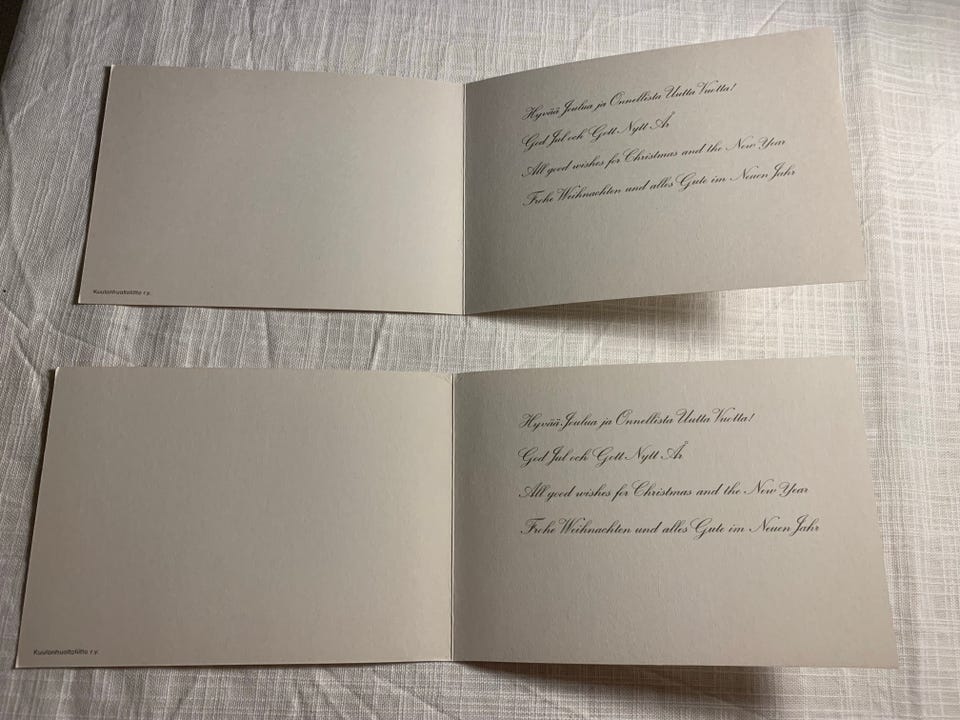 Hyvää Joulua ja Onnellista Uutta Vuotta!
God Jul och Gott Nytt År
All good wishes for Christmas and the New Year
Frohe Weihnachten und alles Gute im Neuen Jahr
Kuulonhuoltoliitto r.y.
Hyvää Joulua ja Onnellista Uutta Vuotta!
God Jul och Gott Nytt År
All good wishes for Christmas and the New Year
Frohe Weihnachten und alles Gute im Neuen Jahr
Kuulonhuoltoliitto r.y.